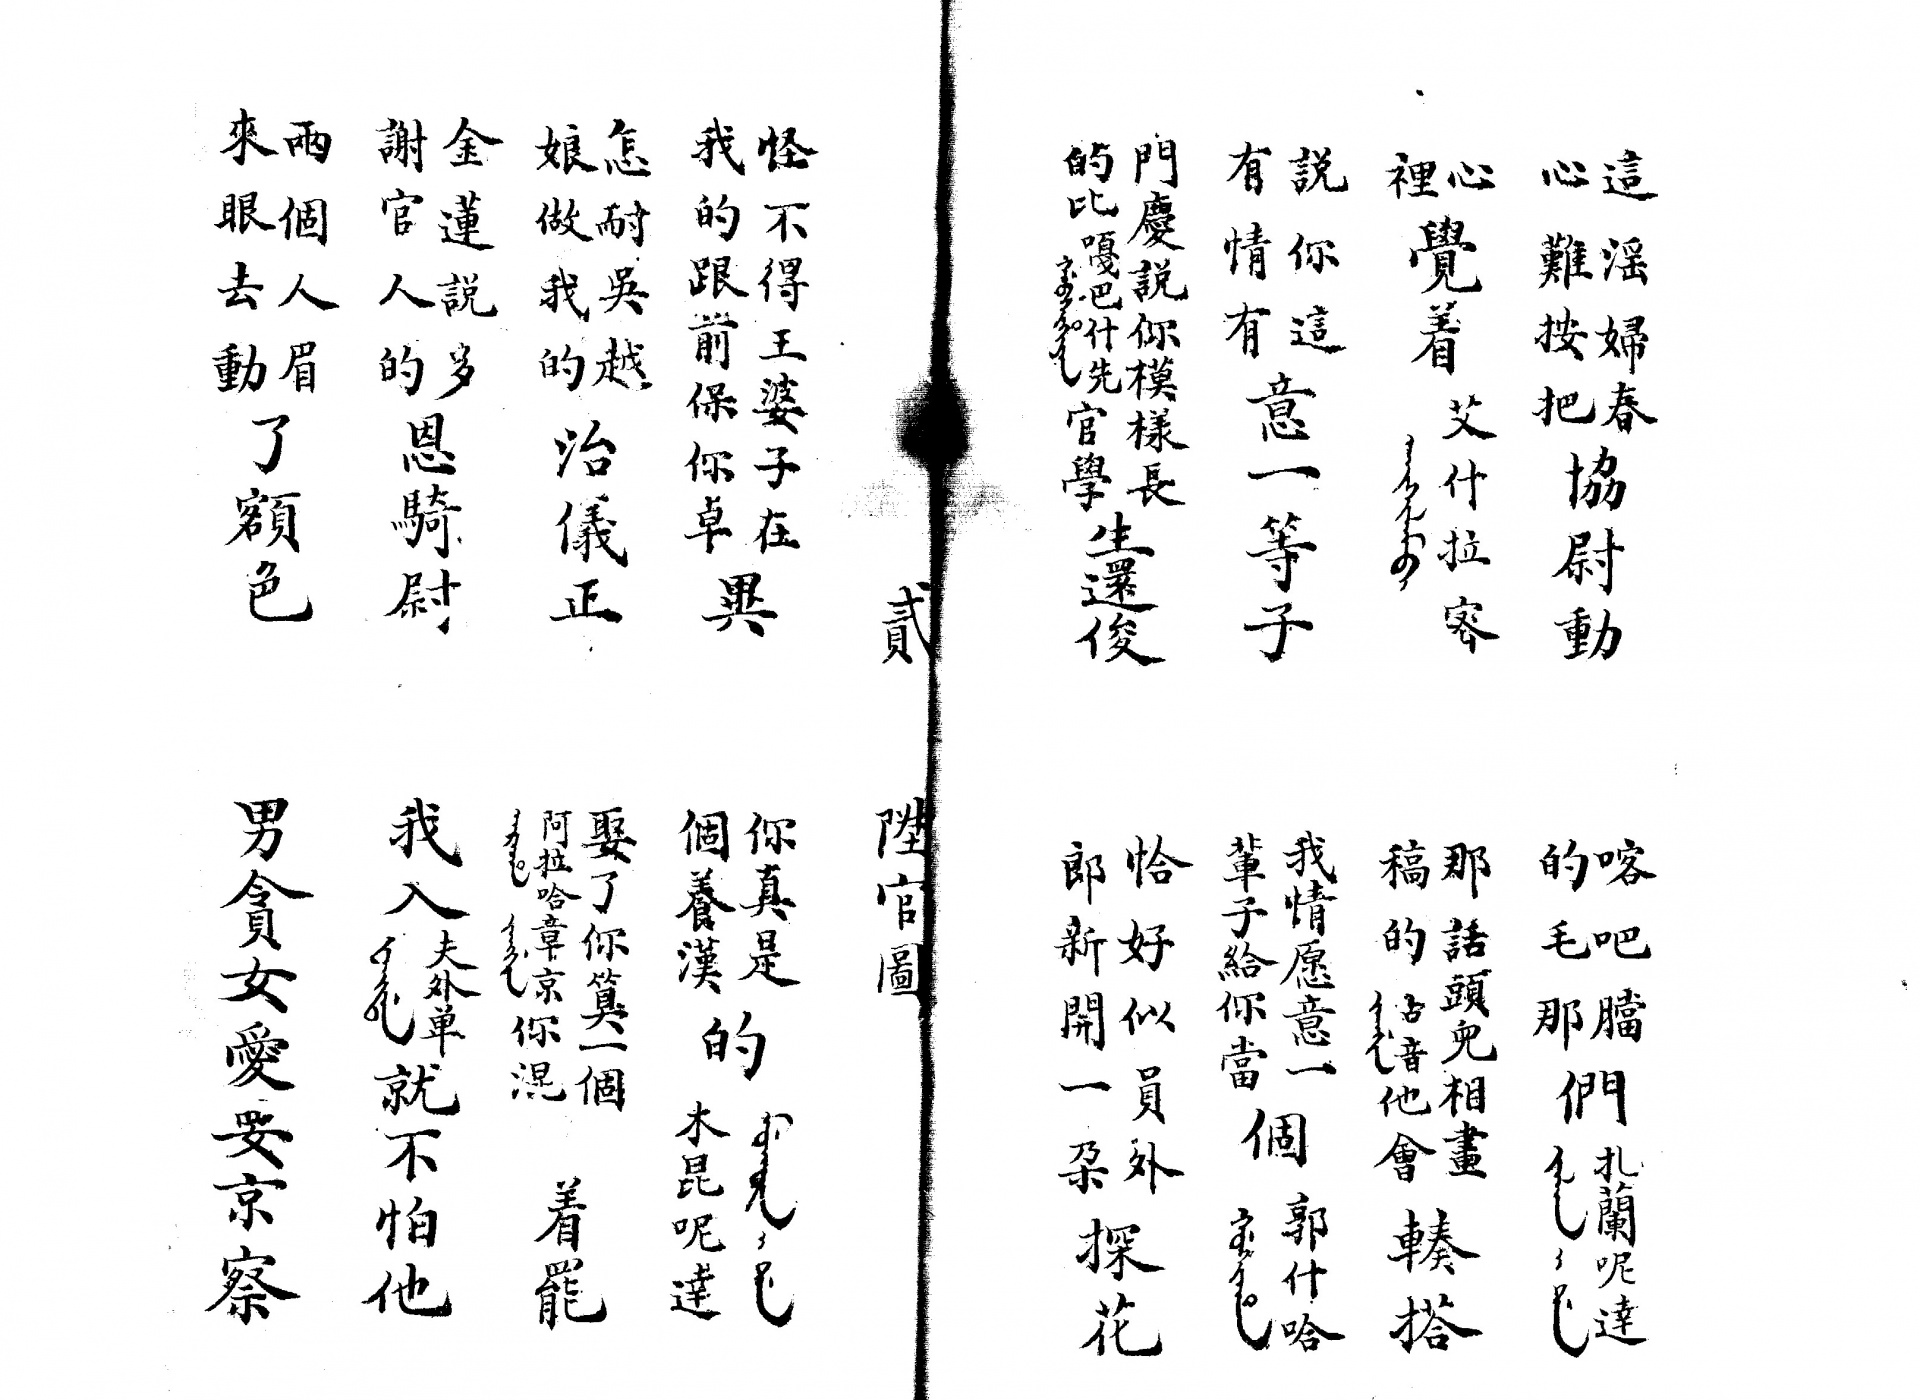 這淫婦春心難按把協尉動
喀吧膛的毛那們 ᠵᠠᠯᠠᠨ ᡳ ᡩᠠ 扎蘭呢達
心裡覺着 艾什拉密
那話頭兒相畫稿的 占音他會輳搭
說你這有情有意一等子
我情愿意一輩子給你當個 ᡤᠣᠴᡳᡴᠠ 郭什哈
門慶說你模樣長的比嘎巴什先官學生還俊
恰好似員外郎新開一朵探花
陞官圖
貳
怪不得王婆子在我的跟前保你卓異
你真是個養漢的 ᠮᡠᡴᡡᠨ ᡳ ᡩᠠ 木昆呢達
怎耐吳越娘做我的治儀正
娶了你筭一個阿拉哈章京你混着罷
金蓮說多謝官人的恩騎尉
我入夫外单就不怕他
兩個人眉來眼去動了額色
男貪女愛妥京察